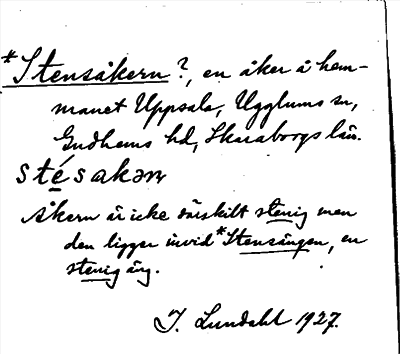 *Stensåkern?, en åker å hem-
manet Uppsala, Ugglums sn,
Gudhems hd, Skaraborgs län.
stésakəɲ
Åkern är icke särskilt stenig men
den ligger invid *Stensängen, en
stenig äng.
J. Lundahl 1927.